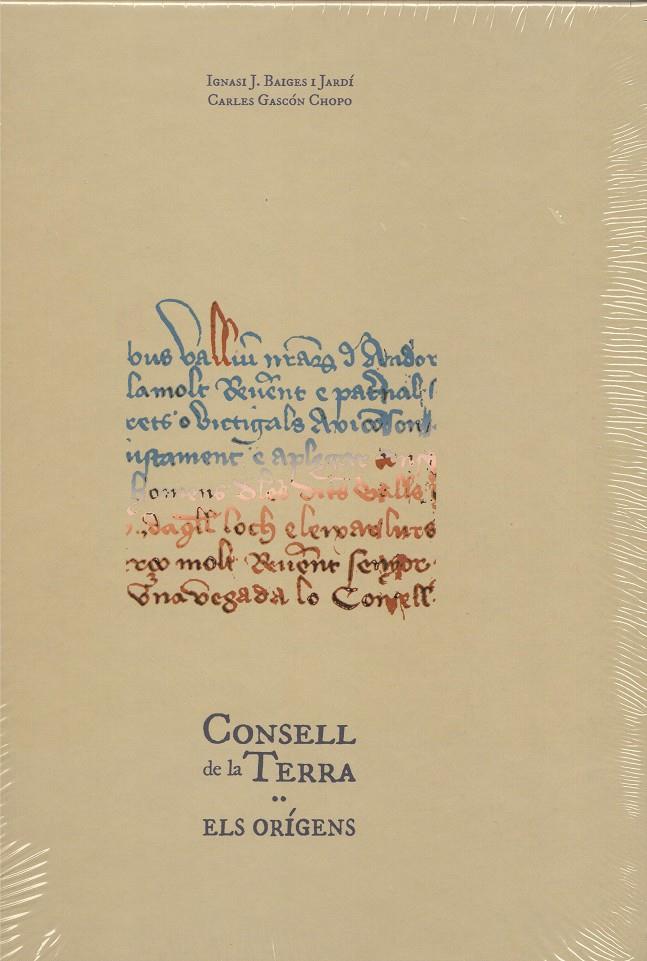 Ignasi J. Baiges i Jardí
Carles Gascón Chopo
bus
lamolt Reverent e
rets o victigals
justament e aplegar
homens dles dits Valls
loch e
molt Reverent senyor
Una vegada lo Consell
Consell
de la Terra
••
els orígens